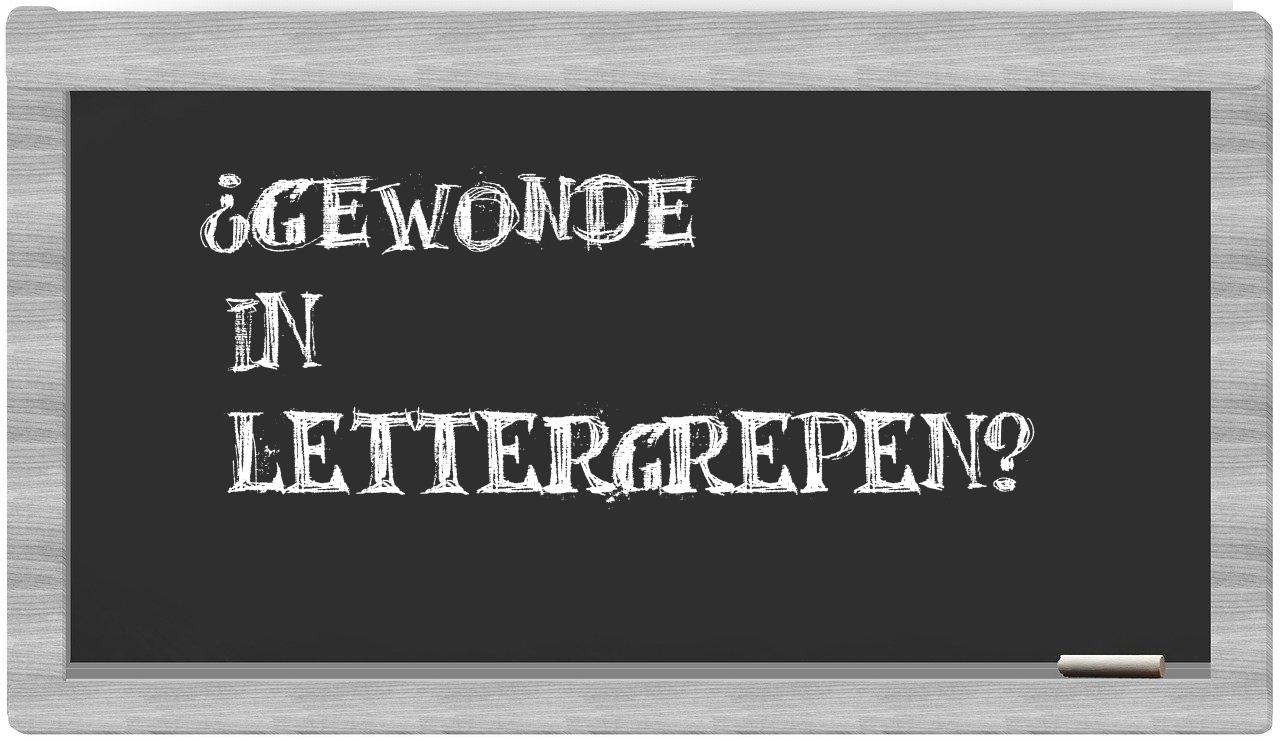 ¿GEWONDE
IN
LETTERGREPEN?